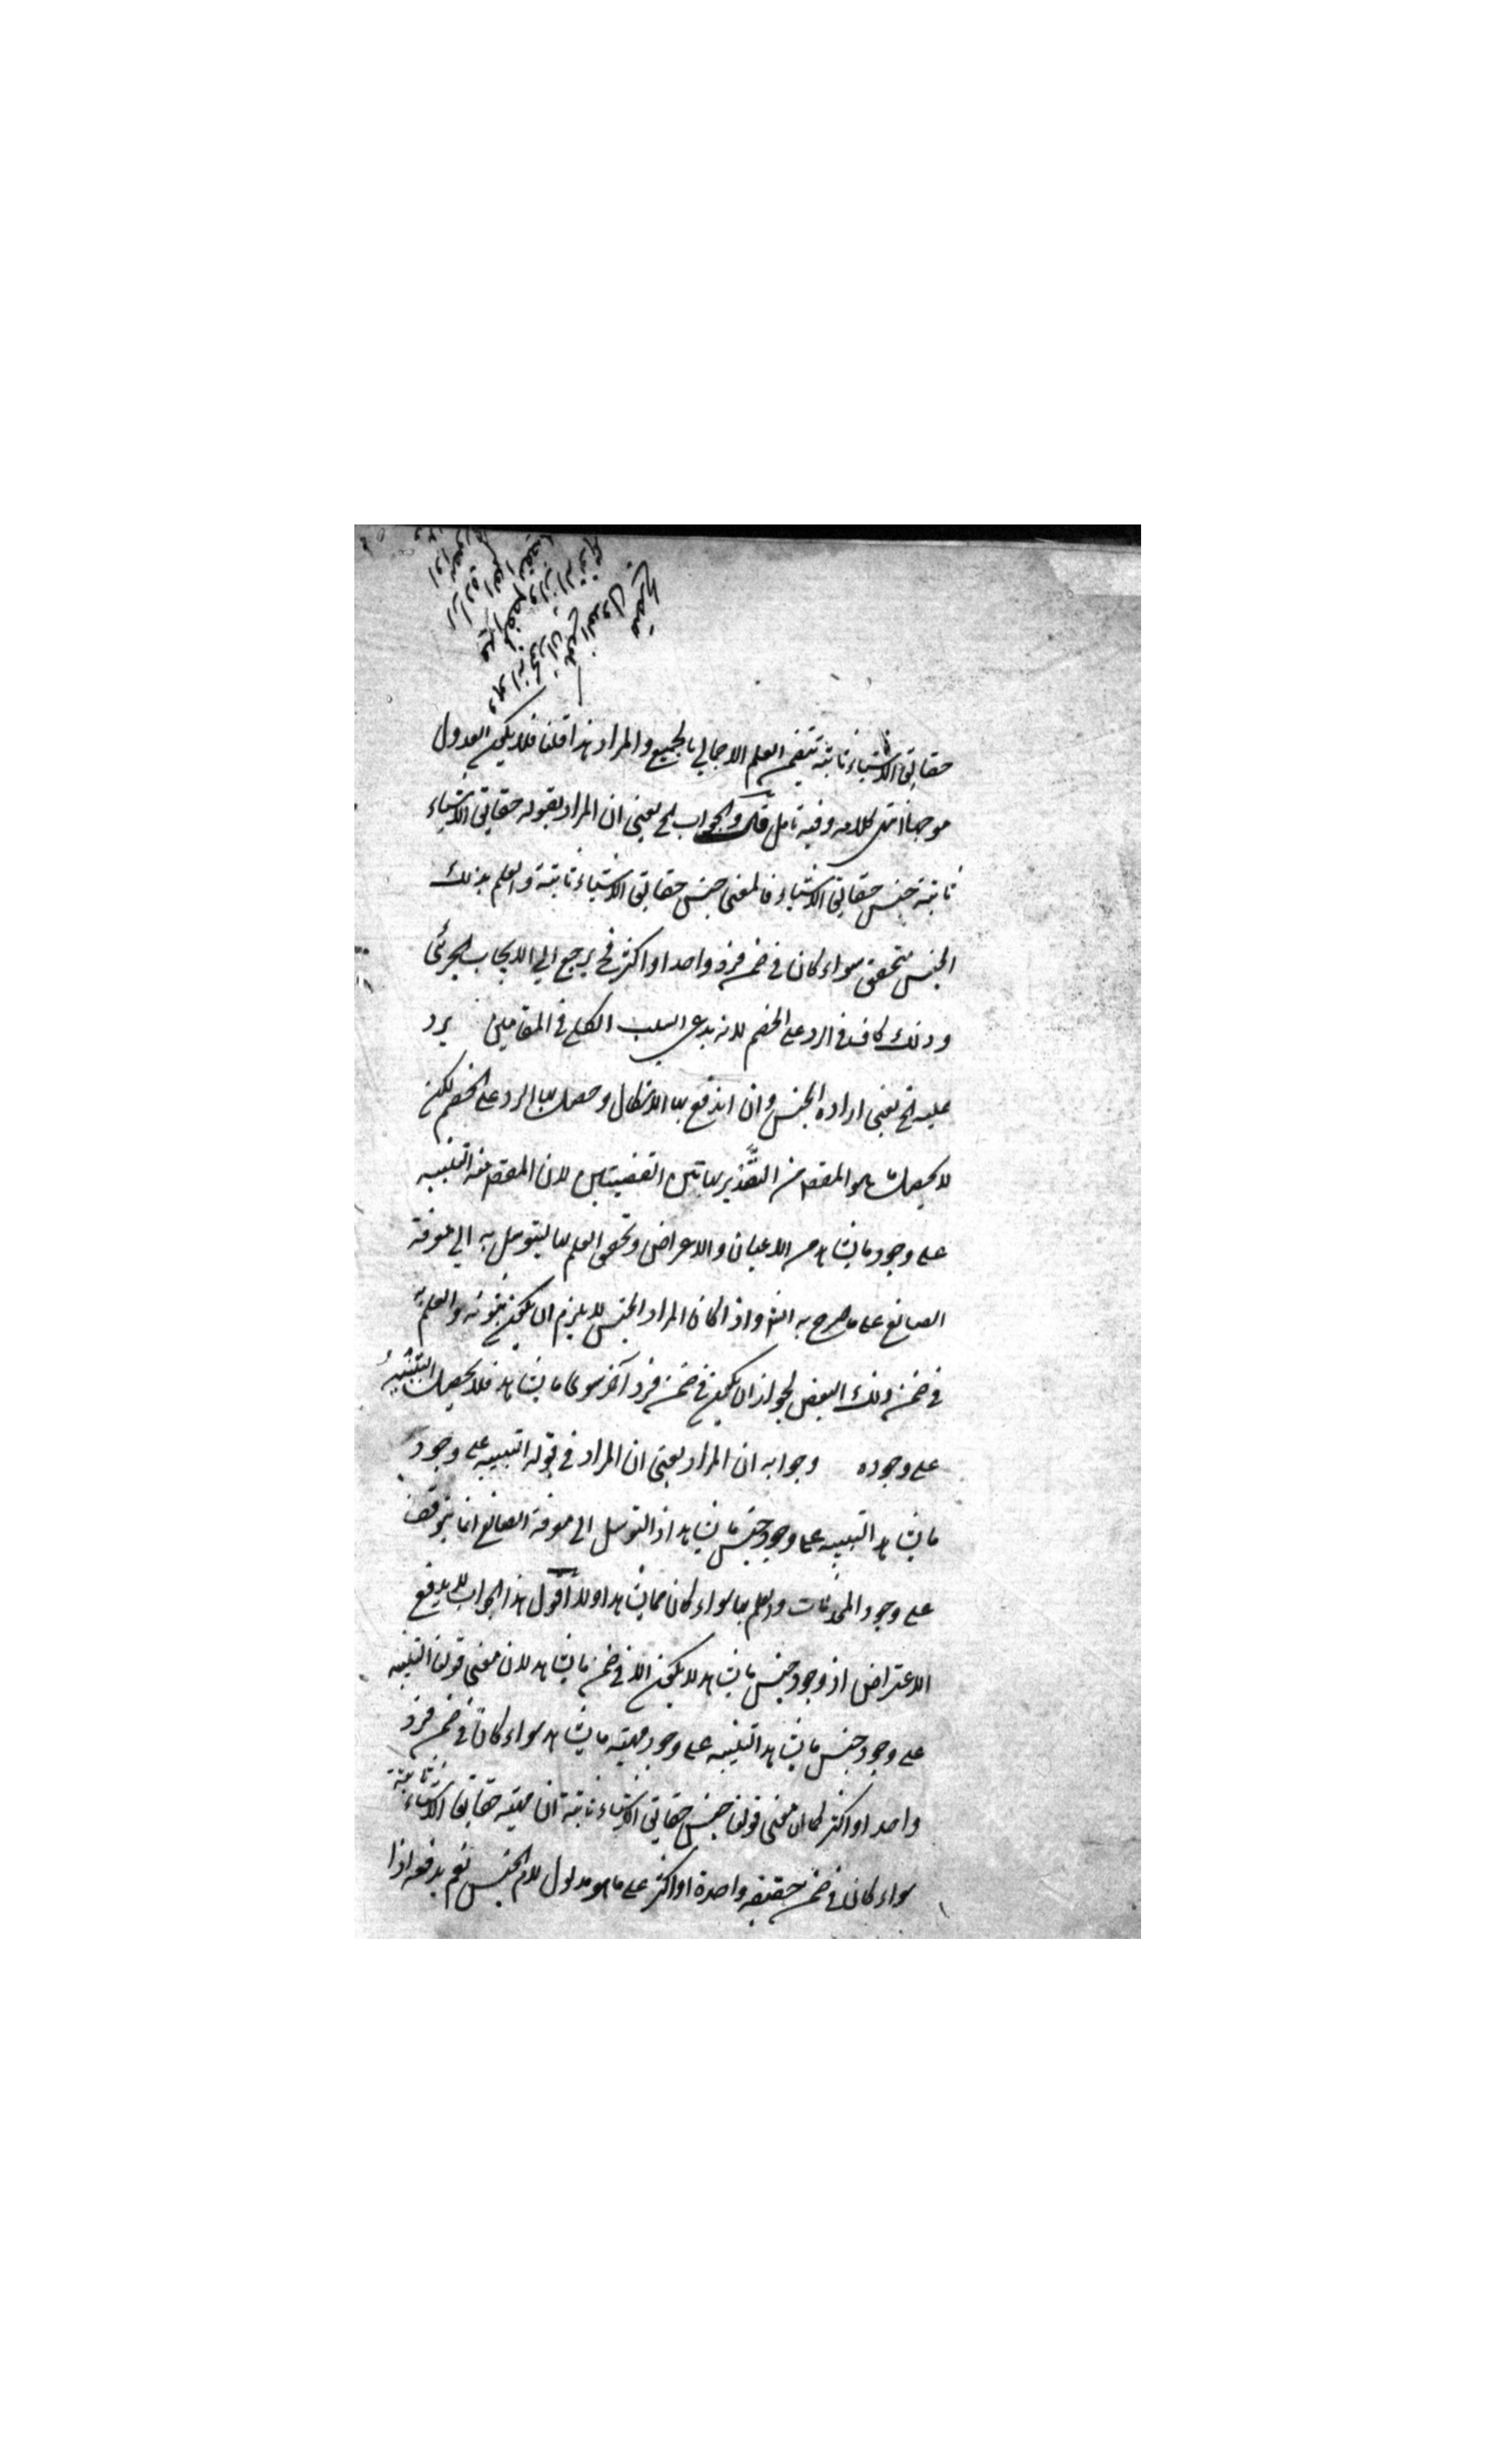 حقايق الاشياء ثابتة يتضمن العلم الاجمالي بالجميع والمراد هذا قلنا فلا يكون العدول
موجها انتهى كلامه وفيه تامل قال والجواب الخ يعني ان المراد بقوله حقايق الاشياء
ثابتة جنس حقايق الاشياء فالمعنى جنس حقايق الاشياء ثابتة والعلم بذلك
الجنس متحقق سواء كان في ضمن فرد واحد او اكثر فح يرجع الي الايجاب الجزئي
وذلك كاف في الرد على الخصم لانه يدعي السلب الكلي في المقامين يرد
عليه الخ يعني ارادة الجنس وان اندفع بها الاشكال وحصل بها الرد على الخصم لكن
لا يحصل ما هو المقصم من التقدير بهاتين القضيتين لان المقصم منه التنبيه
على وجود ما يشاهد من الاعيان والاعراض وتحقق العلم بها ليتوسل به الي معرفة
الصانع على ما صرح به الش واذا كان المراد الجنس لا يلزم ان يكون ثبوته والعلم به
في ضمن ذلك البعض لجواز ان يكون في ضمن فرد آخر سوى ما يشاهد فلا يحصل التنبيه
على وجوده وجوابه ان المراد يعني ان المراد في قوله التنبيه على وجود
ما يشاهد التنبيه على وجود جنس ما يشاهد اذ التوسل الى معرفة الصانع انما يتوقف
على وجود المحدثات والعلم بها سواء كان مما يشاهد اولا اقول هذا الجواب لا يدفع
الاعتراض اذ وجود جنس ما يشاهد لا يكون الا في ضمن ما يشاهد لان معنى قولنا التنبيه
على وجود جنس ما يشاهد التنبيه على وجود مهية ما يشاهد سواء كان في ضمن فرد
واحد او اكثر كما ان معنى قولنا جنس حقايق الاشياء ثابتة ان مهية حقايق الاشياء ثابتة
سواء كان في ضمن حقيقة واحدة او اكثر على ما هو مدلول لام الجنس نعم يدفعه اذا